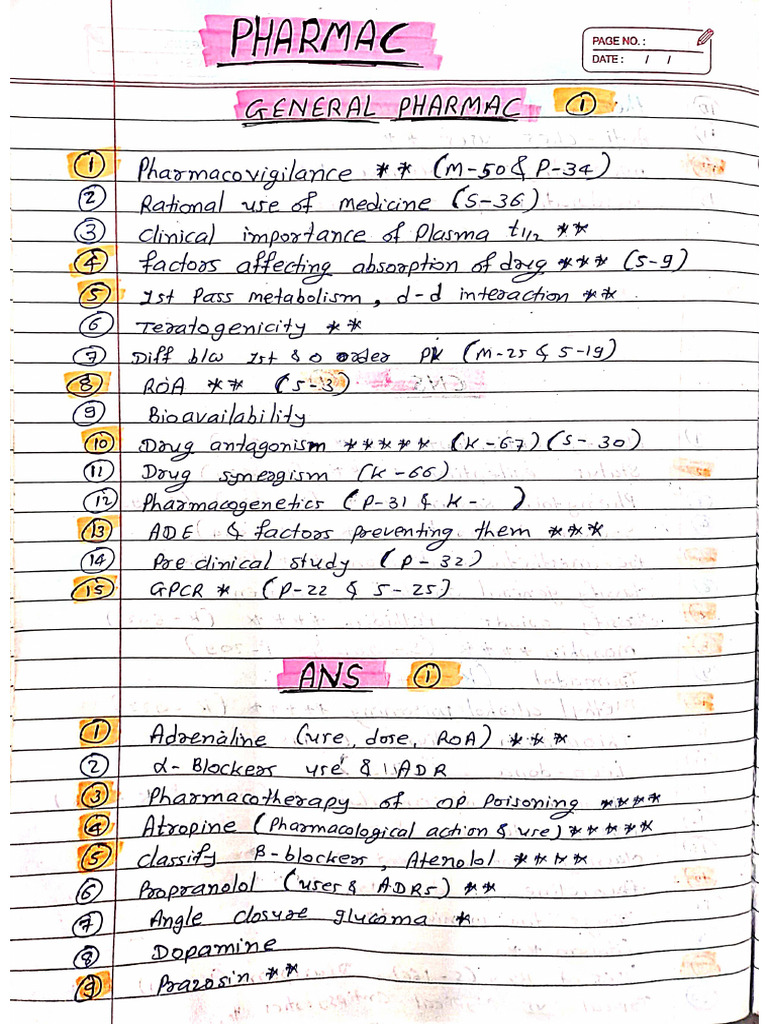 PHARMAC
PAGE NO. :
DATE : / /
GENERAL PHARMAC ①
① Pharmacovigilance ** (M-50 & P-34)
② Rational use of medicine (S-36)
③ Clinical importance of Plasma t1/2 **
④ factors affecting absorption of drug *** (S-9)
⑤ 1st Pass metabolism, d-d interaction **
⑥ Teratogenicity **
⑦ Diff b/w 1st & 0 order PK (M-25 & S-19)
⑧ ROA ** (S-3)
⑨ Bioavailability
⑩ Drug antagonism ***** (K-67) (S-30)
⑪ Drug synergism (K-66)
⑫ Pharmacogenetics (P-31 & K- )
⑬ ADE & factors preventing them ***
⑭ Pre clinical study (P-32)
⑮ GPCR * (P-22 & S-25)
ANS ①
① Adrenaline (use, dose, ROA) ***
② α-Blockers use & ADR
③ Pharmacotherapy of OP Poisoning ****
④ Atropine (Pharmacological action & use) *****
⑤ Classify β-blockers, Atenolol ****
⑥ Propranolol (uses & ADRs) **
⑦ Angle closure glucoma *
⑧ Dopamine
⑨ Prazosin **